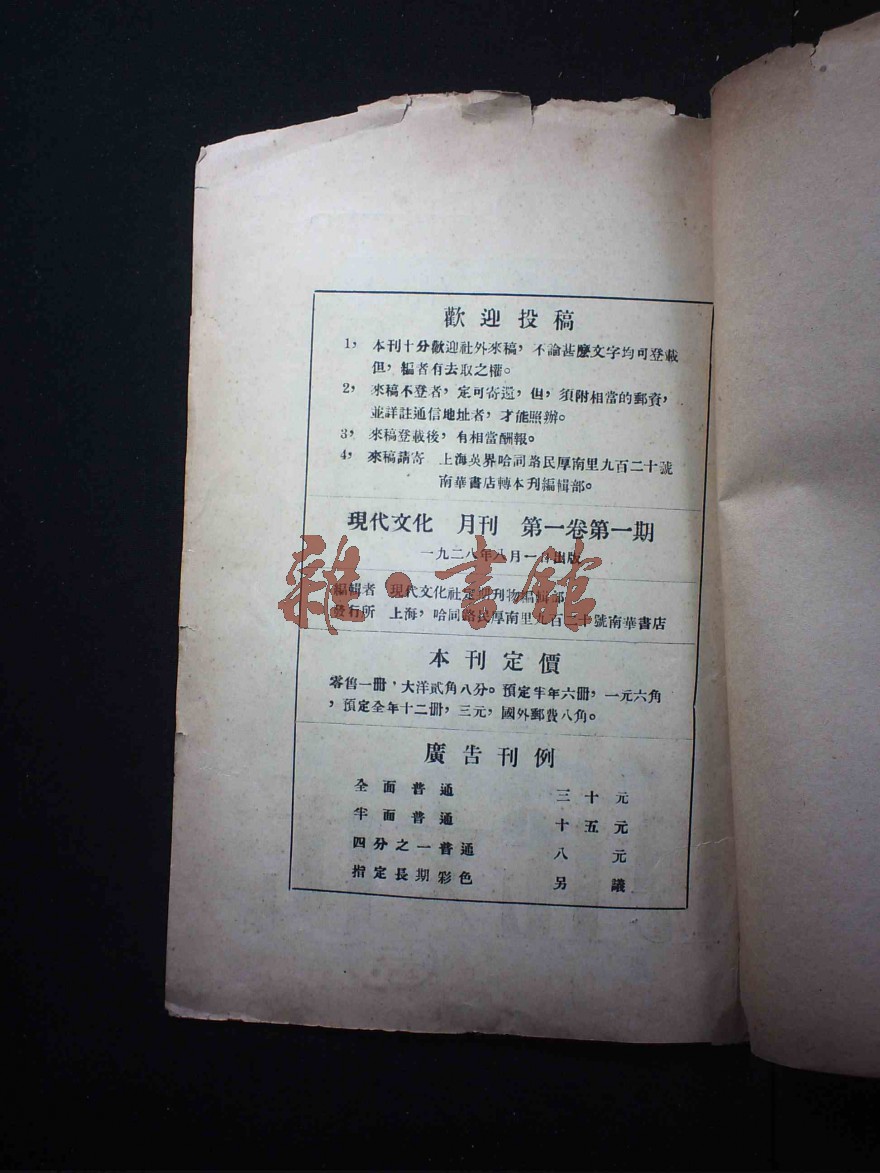 歡迎投稿
1， 本刊十分歡迎社外來稿，不論甚麽文字均可登載
但，編者有去取之權。
2， 來稿不登者，定可寄還，但，須附相當的郵資，
並詳註通信地址者，才能照辦。
3， 來稿登載後，有相當酬報。
4， 來稿請寄 上海英界哈同路民厚南里九百二十號
南華書店轉本刊編輯部。
現代文化 月刊 第一卷第一期
一九二八年八月一日出版
雜·書館
編輯者 現代文化社定期刊物編輯部
發行所 上海，哈同路民厚南里九百二十號南華書店
本刊定價
零售一冊，大洋貳角八分。預定半年六冊，一元六角
，預定全年十二冊，三元，國外郵費八角。
廣告刊例
全面普通 三十元
半面普通 十五元
四分之一普通 八元
指定長期彩色 另議